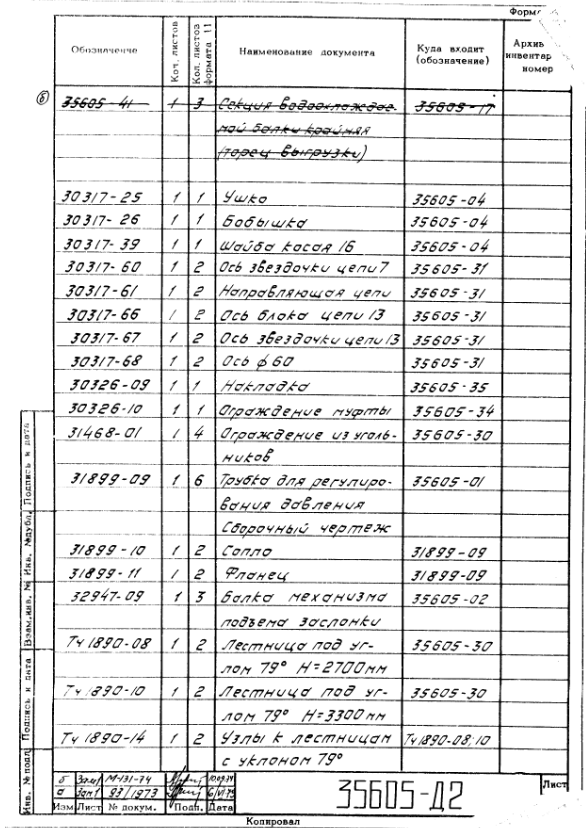 Форма
Обозначение
Кол. листов
Кол. листов формата 11
Наименование документа
Куда входит (обозначение)
Архив инвентар номер
б
35605-41 1 3 Секция водоохлаждае- 35605-17
мой балки крайняя
(торец выгрузки)
30317-25 1 1 Ушко 35605-04
30317-26 1 1 Бобышка 35605-04
30317-39 1 1 Шайба косая 16 35605-04
30317-60 1 2 Ось звездочки цепи 7 35605-31
30317-61 1 2 Направляющая цепи 35605-31
30317-66 1 2 Ось блока цепи 13 35605-31
30317-67 1 2 Ось звездочки цепи 13 35605-31
30317-68 1 2 Ось ф 60 35605-31
30326-09 1 1 Накладка 35605-35
30326-10 1 1 Ограждение муфты 35605-34
31468-01 1 4 Ограждение из уголь- 35605-30
ников
31899-09 1 6 Трубка для регулиро- 35605-01
вания давления
Сборочный чертеж
31899-10 1 2 Сопло 31899-09
31899-11 1 2 Фланец 31899-09
32947-09 1 3 Балка механизма 35605-02
подъема заслонки
Тч 1890-08 1 2 Лестница под уг- 35605-30
лом 79° Н=2700мм
Тч 1890-10 1 2 Лестница под уг- 35605-30
лом 79° Н=3300мм
Тч 1890-14 1 2 Узлы к лестницам Тч1890-08;10
с уклоном 79°
Инв. № подл. Подпись и дата Взам.инв. № Инв. №дубл. Подпись и дата
б Зам М-131-74
а Зам1 93/1973
Изм Лист № докум. Подп. Дата
35605-Д2
Лист
Копировал